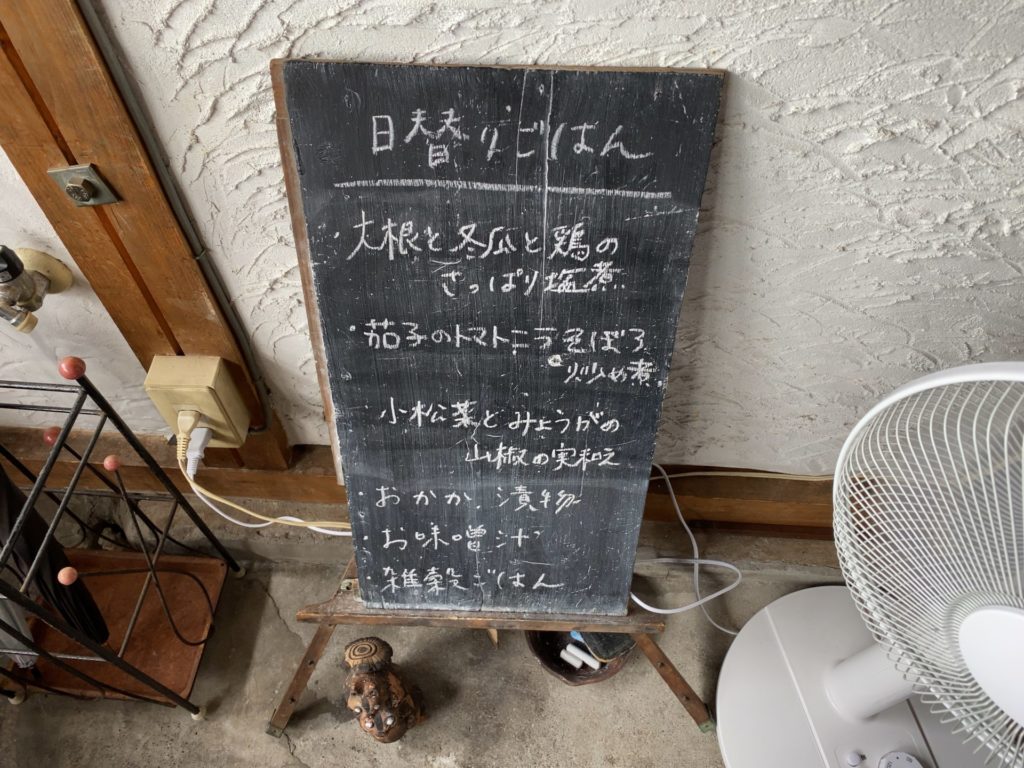 日替りごはん
・大根と冬瓜と鶏の
さっぱり塩煮
・茄子のトマトニラそぼろ
炒め煮
・小松菜とみょうがの
山椒の実和え
・おかか、漬物
・お味噌汁
・雑穀ごはん